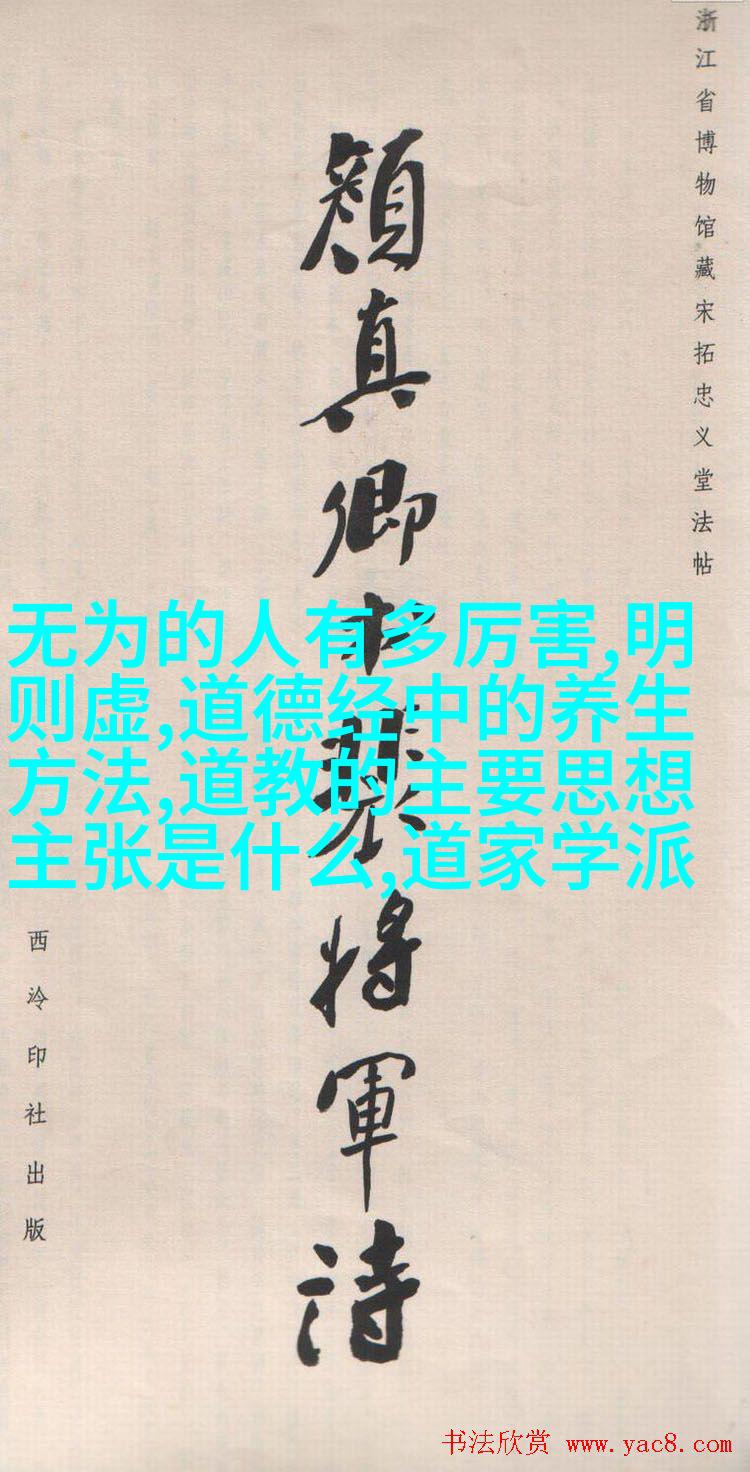 浙江省博物馆藏宋拓忠义堂法帖
顔真卿书裴将軍诗
西泠印社出版
无为的人有多厉害,明
则虚,道德经中的养生
方法,道教的主要思想
主张是什么,道家学派
书法欣赏 www.yac8.com